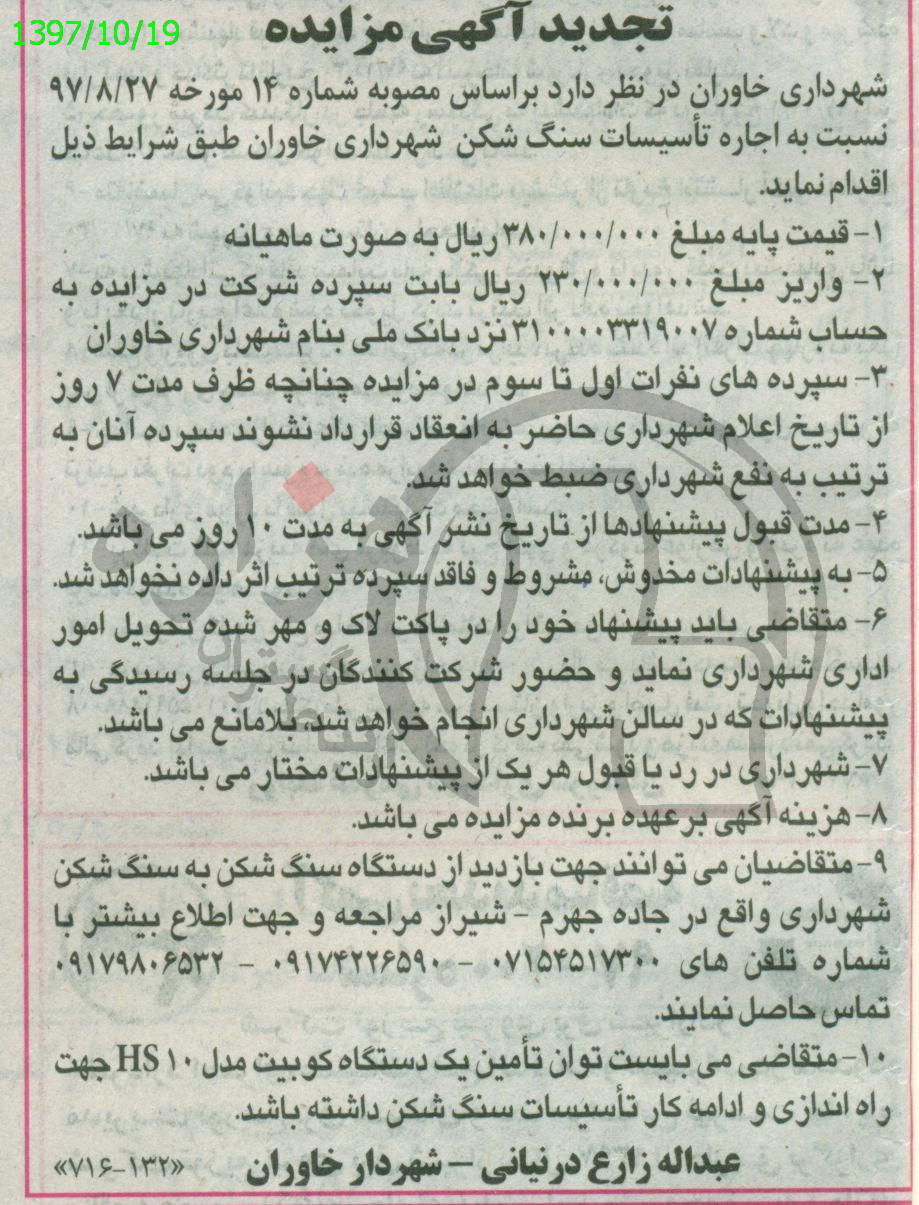 1397/10/19
تجدید آگهی مزایده
شهرداری خاوران در نظر دارد براساس مصوبه شماره ۱۴ مورخه ۹۷/۸/۲۷
نسبت به اجاره تأسیسات سنگ شکن شهرداری خاوران طبق شرایط ذیل
اقدام نماید.
۱- قیمت پایه مبلغ ۳۸۰/۰۰۰/۰۰۰ ریال به صورت ماهیانه
۲- واریز مبلغ ۲۳۰/۰۰۰/۰۰۰ ریال بابت سپرده شرکت در مزایده به
حساب شماره ۳۱۰۰۰۰۳۳۱۹۰۰۷ نزد بانک ملی بنام شهرداری خاوران
۳- سپرده های نفرات اول تا سوم در مزایده چنانچه ظرف مدت ۷ روز
از تاریخ اعلام شهرداری حاضر به انعقاد قرارداد نشوند سپرده آنان به
ترتیب به نفع شهرداری ضبط خواهد شد.
۴- مدت قبول پیشنهادها از تاریخ نشر آگهی به مدت ۱۰ روز می باشد.
۵- به پیشنهادات مخدوش، مشروط و فاقد سپرده ترتیب اثر داده نخواهد شد.
۶- متقاضی باید پیشنهاد خود را در پاکت لاک و مهر شده تحویل امور
اداری شهرداری نماید و حضور شرکت کنندگان در جلسه رسیدگی به
پیشنهادات که در سالن شهرداری انجام خواهد شد، بلامانع می باشد.
۷- شهرداری در رد یا قبول هر یک از پیشنهادات مختار می باشد.
۸- هزینه آگهی برعهده برنده مزایده می باشد.
۹- متقاضیان می توانند جهت بازدید از دستگاه سنگ شکن به سنگ شکن
شهرداری واقع در جاده جهرم - شیراز مراجعه و جهت اطلاع بیشتر با
شماره تلفن های ۰۷۱۵۴۵۱۷۳۰۰ - ۰۹۱۷۴۲۲۶۵۹۰ - ۰۹۱۷۹۸۰۶۵۳۲
تماس حاصل نمایند.
۱۰- متقاضی می بایست توان تأمین یک دستگاه کوبیت مدل HS ۱۰ جهت
راه اندازی و ادامه کار تأسیسات سنگ شکن داشته باشد.
عبداله زارع درنیانی – شهردار خاوران «۷۱۶-۱۳۲»
هزاره